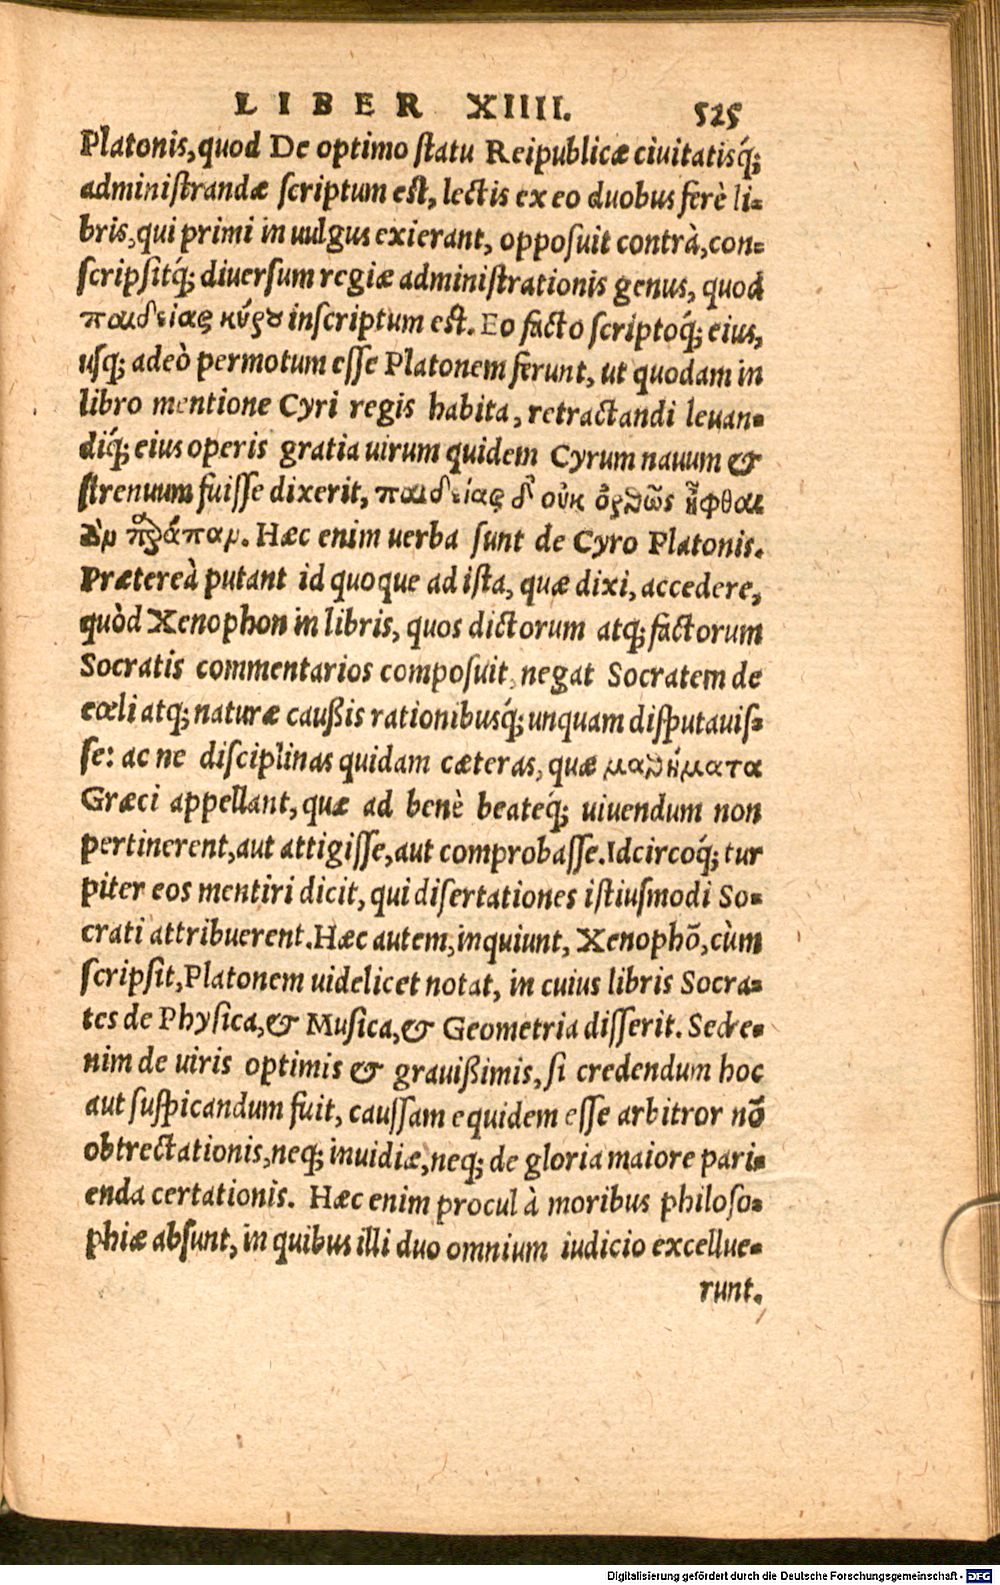 LIBER XIIII. 525
Platonis, quod De optimo ſtatu Reipublicæ ciuitatisq́;
adminiſtrandæ ſcriptum eſt, lectis ex eo duobus ferè li-
bris, qui primi in uulgus exierant, oppoſuit contrà, con-
ſcripſitq́; diuerſum regiæ adminiſtrationis genus, quod
παιδείας κύρȣ inſcriptum eſt. Eo facto ſcriptoq́; eius,
uſq; adeò permotum eſſe Platonem ferunt, ut quodam in
libro mentione Cyri regis habita, retractandi leuan-
diq́; eius operis gratia uirum quidem Cyrum nauum &
ſtrenuum fuiſſe dixerit, παιδείας δ' οὐκ ὀρθῶς ἧφθαι
Hæc enim uerba ſunt de Cyro Platonis.
Prætereà putant id quoque ad iſta, quæ dixi, accedere,
quòd Xenophon in libris, quos dictorum atq; factorum
Socratis commentarios compoſuit, negat Socratem de
cœli atq; naturæ caußis rationibusq́; unquam diſputauiſ-
ſe: ac ne diſciplinas quidam cæteras, quæ μαθήματα
Græci appellant, quæ ad benè beateq́; uiuendum non
pertinerent, aut attigiſſe, aut comprobaſſe. Idcircoq́; tur
piter eos mentiri dicit, qui diſertationes iſtiuſmodi So-
crati attribuerent. Hæc autem, inquiunt, Xenophõ, cùm
ſcripſit, Platonem uidelicet notat, in cuius libris Socra-
tes de Phyſica, & Muſica, & Geometria diſſerit. Sed e-
nim de uiris optimis & grauißimis, ſi credendum hoc
aut ſuſpicandum fuit, cauſſam equidem eſſe arbitror nõ
obtrectationis, neq; inuidiæ, neq; de gloria maiore pari-
enda certationis. Hæc enim procul à moribus philoſo-
phiæ abſunt, in quibus illi duo omnium iudicio excellue-
runt.
Digitalisierung gefördert durch die Deutsche Forschungsgemeinschaft - DFG